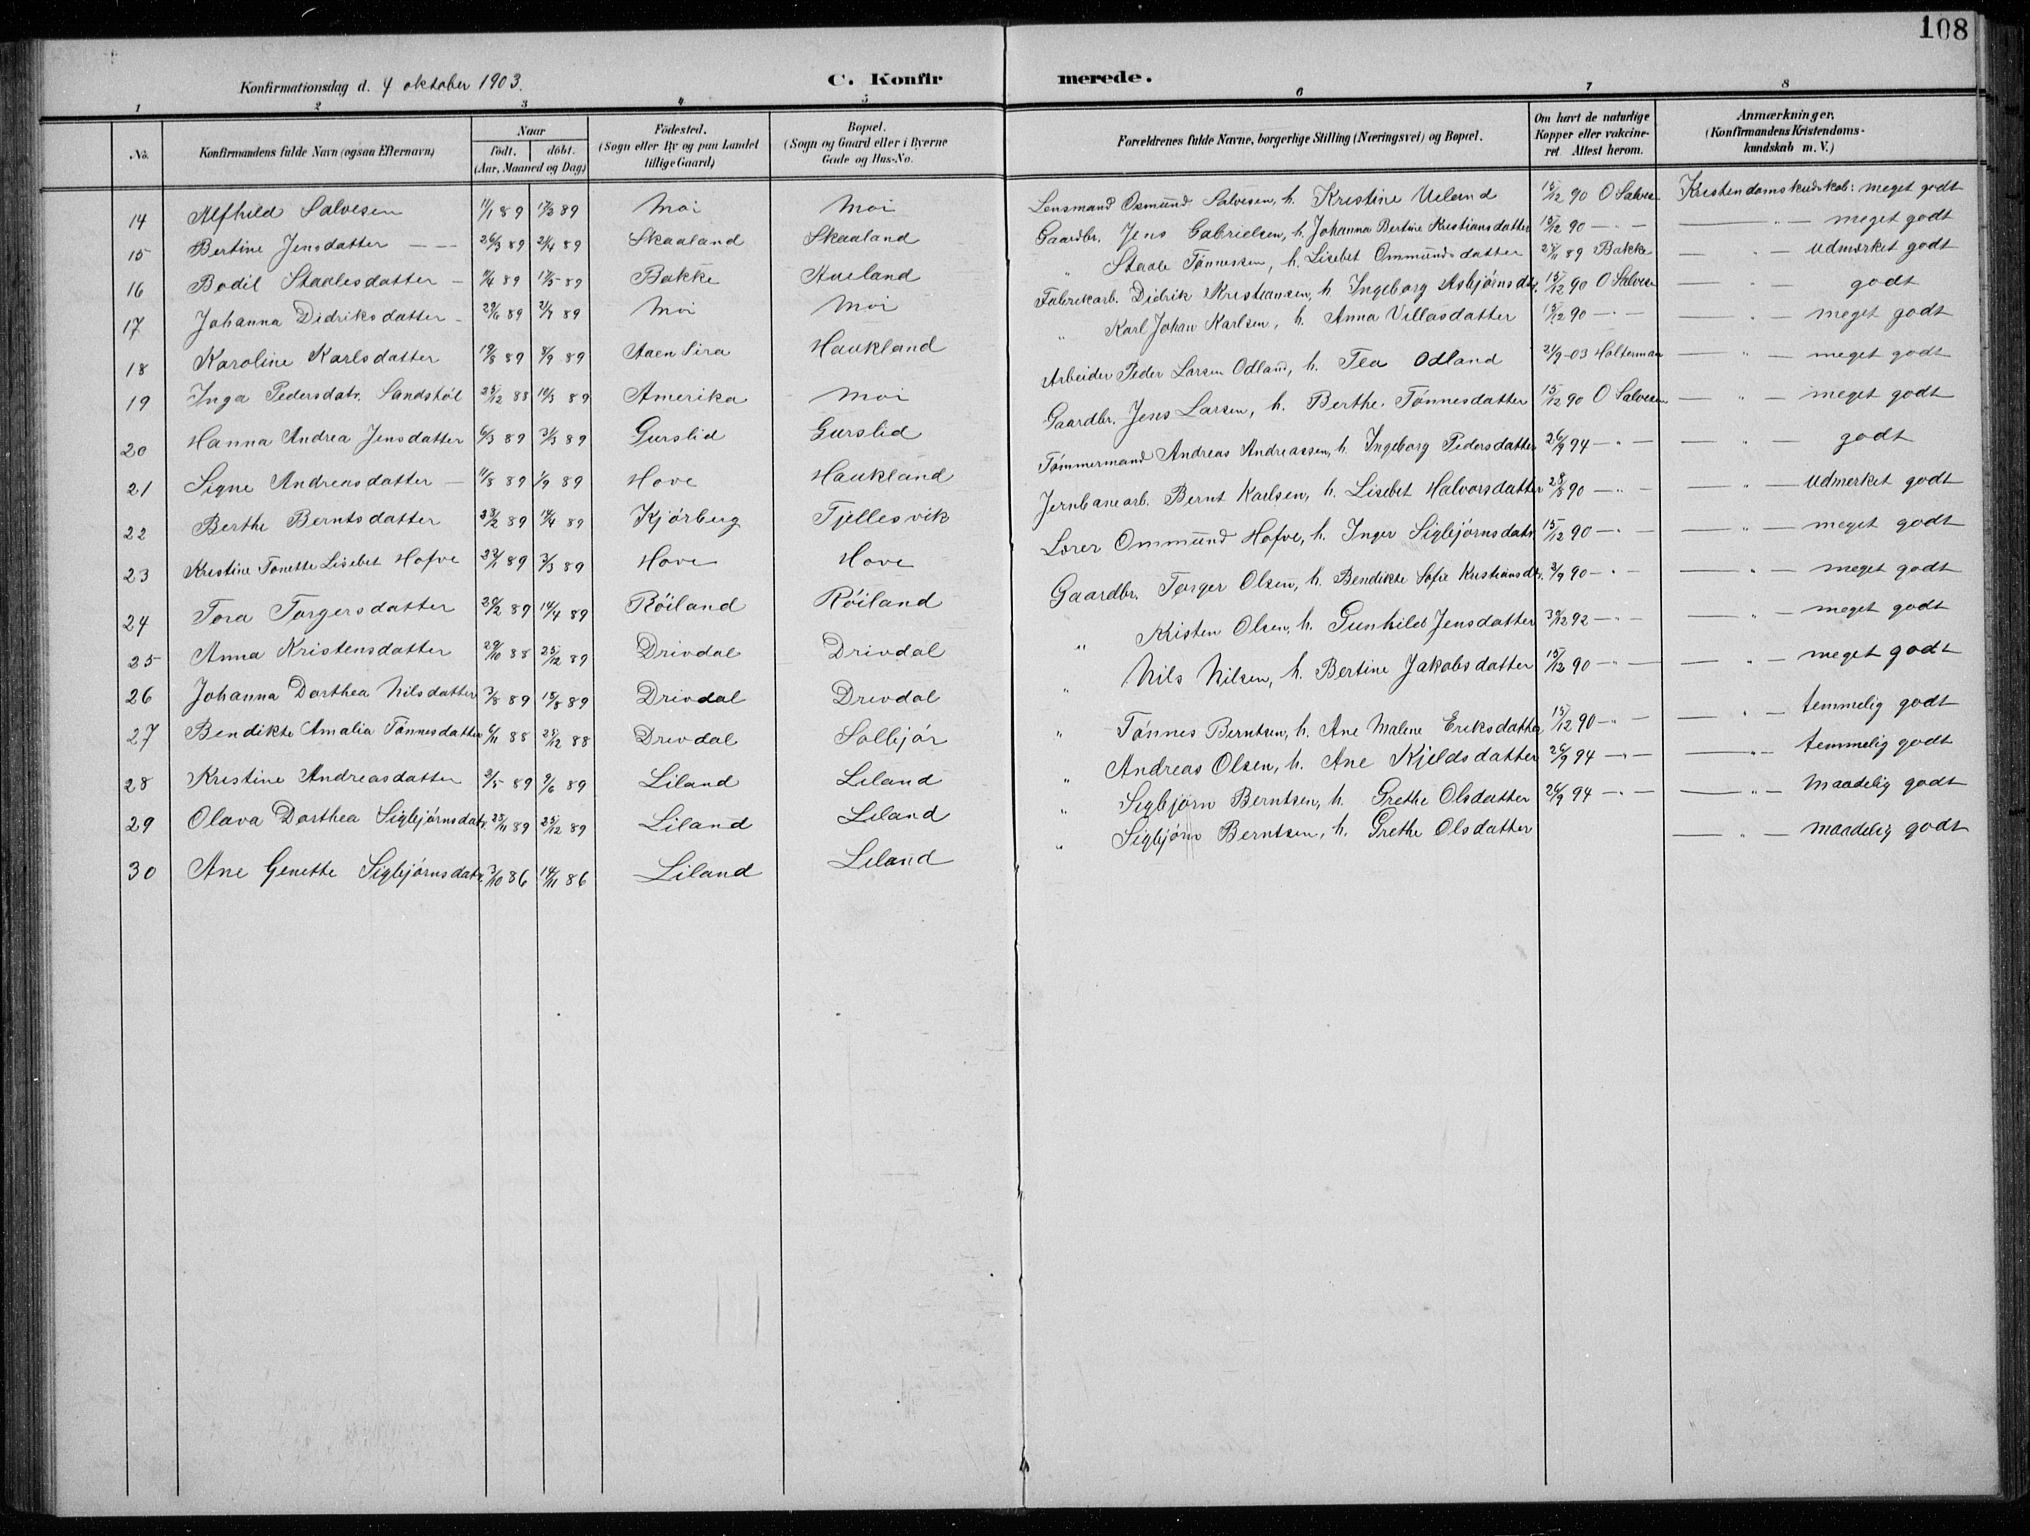 108
Konfirmationsdag d. 4 oktober 1903.
C. Konfirmerede.
1 2 3 4 5 6 7 8
No. Konfirmandens fulde Navn (ogsaa Efternavn) Naar født. døbt. (Aar, Maaned og Dag) Fødested. (Sogn eller By og paa Landet tillige Gaard) Bopæl. (Sogn og Gaard eller i Byerne Gade og Hus-No. Forældrenes fulde Navne, borgerlige Stilling (Næringsvei) og Bopæl. Om havt de naturlige Kopper eller vakcineret. Attest herom. Anmærkninger. (Konfirmandens Kristendomskundskab m. V.)
14 Alfhild Salvesen 11/1 89 17/3 89 Moi Moi Lensmand Osmund Salvesen, h. Kristine Ueland 15/12 90 O Salvesen Kristendomskudskab: meget godt
15 Bertine Jensdatter - - 26/3 89 21/4 89 Skaaland Skaaland Gaardbr. Jens Gabrielsen, h. Johanna Bertine Kristiansdatter 15/12 90 - " - — " — meget godt
16 Bodil Staalesdatter - 89 89 Bakke Aueland " Staale Tønnessen, h. Lisebet Ommundsdatter 89 Bakke — " — udmærket godt
17 Johanna Didriksdatter - 29/6 89 21/7 89 Moi Moi Fabrikarb. Didrik Kristiansen, h. Ingeborg Asbjørnsdtr. 15/12 90 O Salvesen — " — godt
18 Karoline Karlsdatter 19/8 89 8/9 89 Aaen Sira Haukland " Karl Johan Karlsen, h. Anna Villasdatter 15/12 90 - " - — " — meget godt
19 Inga Pedersdatr. Sandstøl 25/12 88 10/3 89 Amerika Moi Arbeider Peder Larsen Odland, h. Tea Odland 21/9-03 Holterman — " — meget godt
20 Hanna Andrea Jensdatter 6/3 89 31/3 89 Gurslid Gurslid Gaardbr. Jens Larsen, h. Berthe Tønnesdatter 15/12 90 O Salvesen — " — meget godt
21 Signe Andreasdatter - 11/8 89 1/9 89 Hove Haukland Tømmermand Andreas Andreassen, h. Ingeborg Pedersdatter 26/9 94 - " - — " — godt
22 Berthe Berntsdatter 23/2 89 14/4 89 Kjørberg Tjellesvik Jernbanearb. Bernt Karlsen, h. Lisebet Halvorsdatter 28/8 90 - " - — " — udmerket godt
23 Kristine Tonette Lisebet Hofve 89 3/3 89 Hove Hove Lærer Ommund Hofve, h. Inger Sigbjørnsdatr. 15/12 90 - " - — " — meget godt
24 Tora Torgersdatter 89 14/4 89 Røiland Røiland Gaardbr. Torger Olsen, h. Bendikte Sofie Kristiansdtr. 3/9 90 - " - — " — meget godt
25 Anna Kristensdatter 29/10 88 25/12 89 Drivdal Drivdal " Kristen Olsen, h. Gunhild Jensdatter 30/12 92 - " - — " — meget godt
26 Johanna Dorthea Nilsdatter 3/8 89 18/8 89 Drivdal Drivdal " Nils Nilsen, h. Bertine Jakobsdatter 15/12 90 - " - — " — meget godt
27 Bendikte Amalia Tønnesdatter 6/11 88 25/12 88 Drivdal Solbjør " Tønnes Berntsen, h. Ane Malene Eriksdatter 15/12 90 - " - — " — temmelig godt
28 Kristine Andreasdatter 2/5 89 9/6 89 Liland Liland " Andreas Olsen, h. Ane Kjeldsdatter 26/9 94 - " - — " — temmelig godt
29 Olava Dorthea Sigbjørnsdatr. 23/11 89 25/12 89 Liland Liland " Sigbjørn Berntsen, h. Grethe Olsdatter 26/9 94 - " - — " — maadelig godt
30 Ane Genette Sigbjørnsdatr. 3/10 86 14/11 86 Liland Liland " Sigbjørn Berntsen, h. Grethe Olsdatter — " — maadelig godt